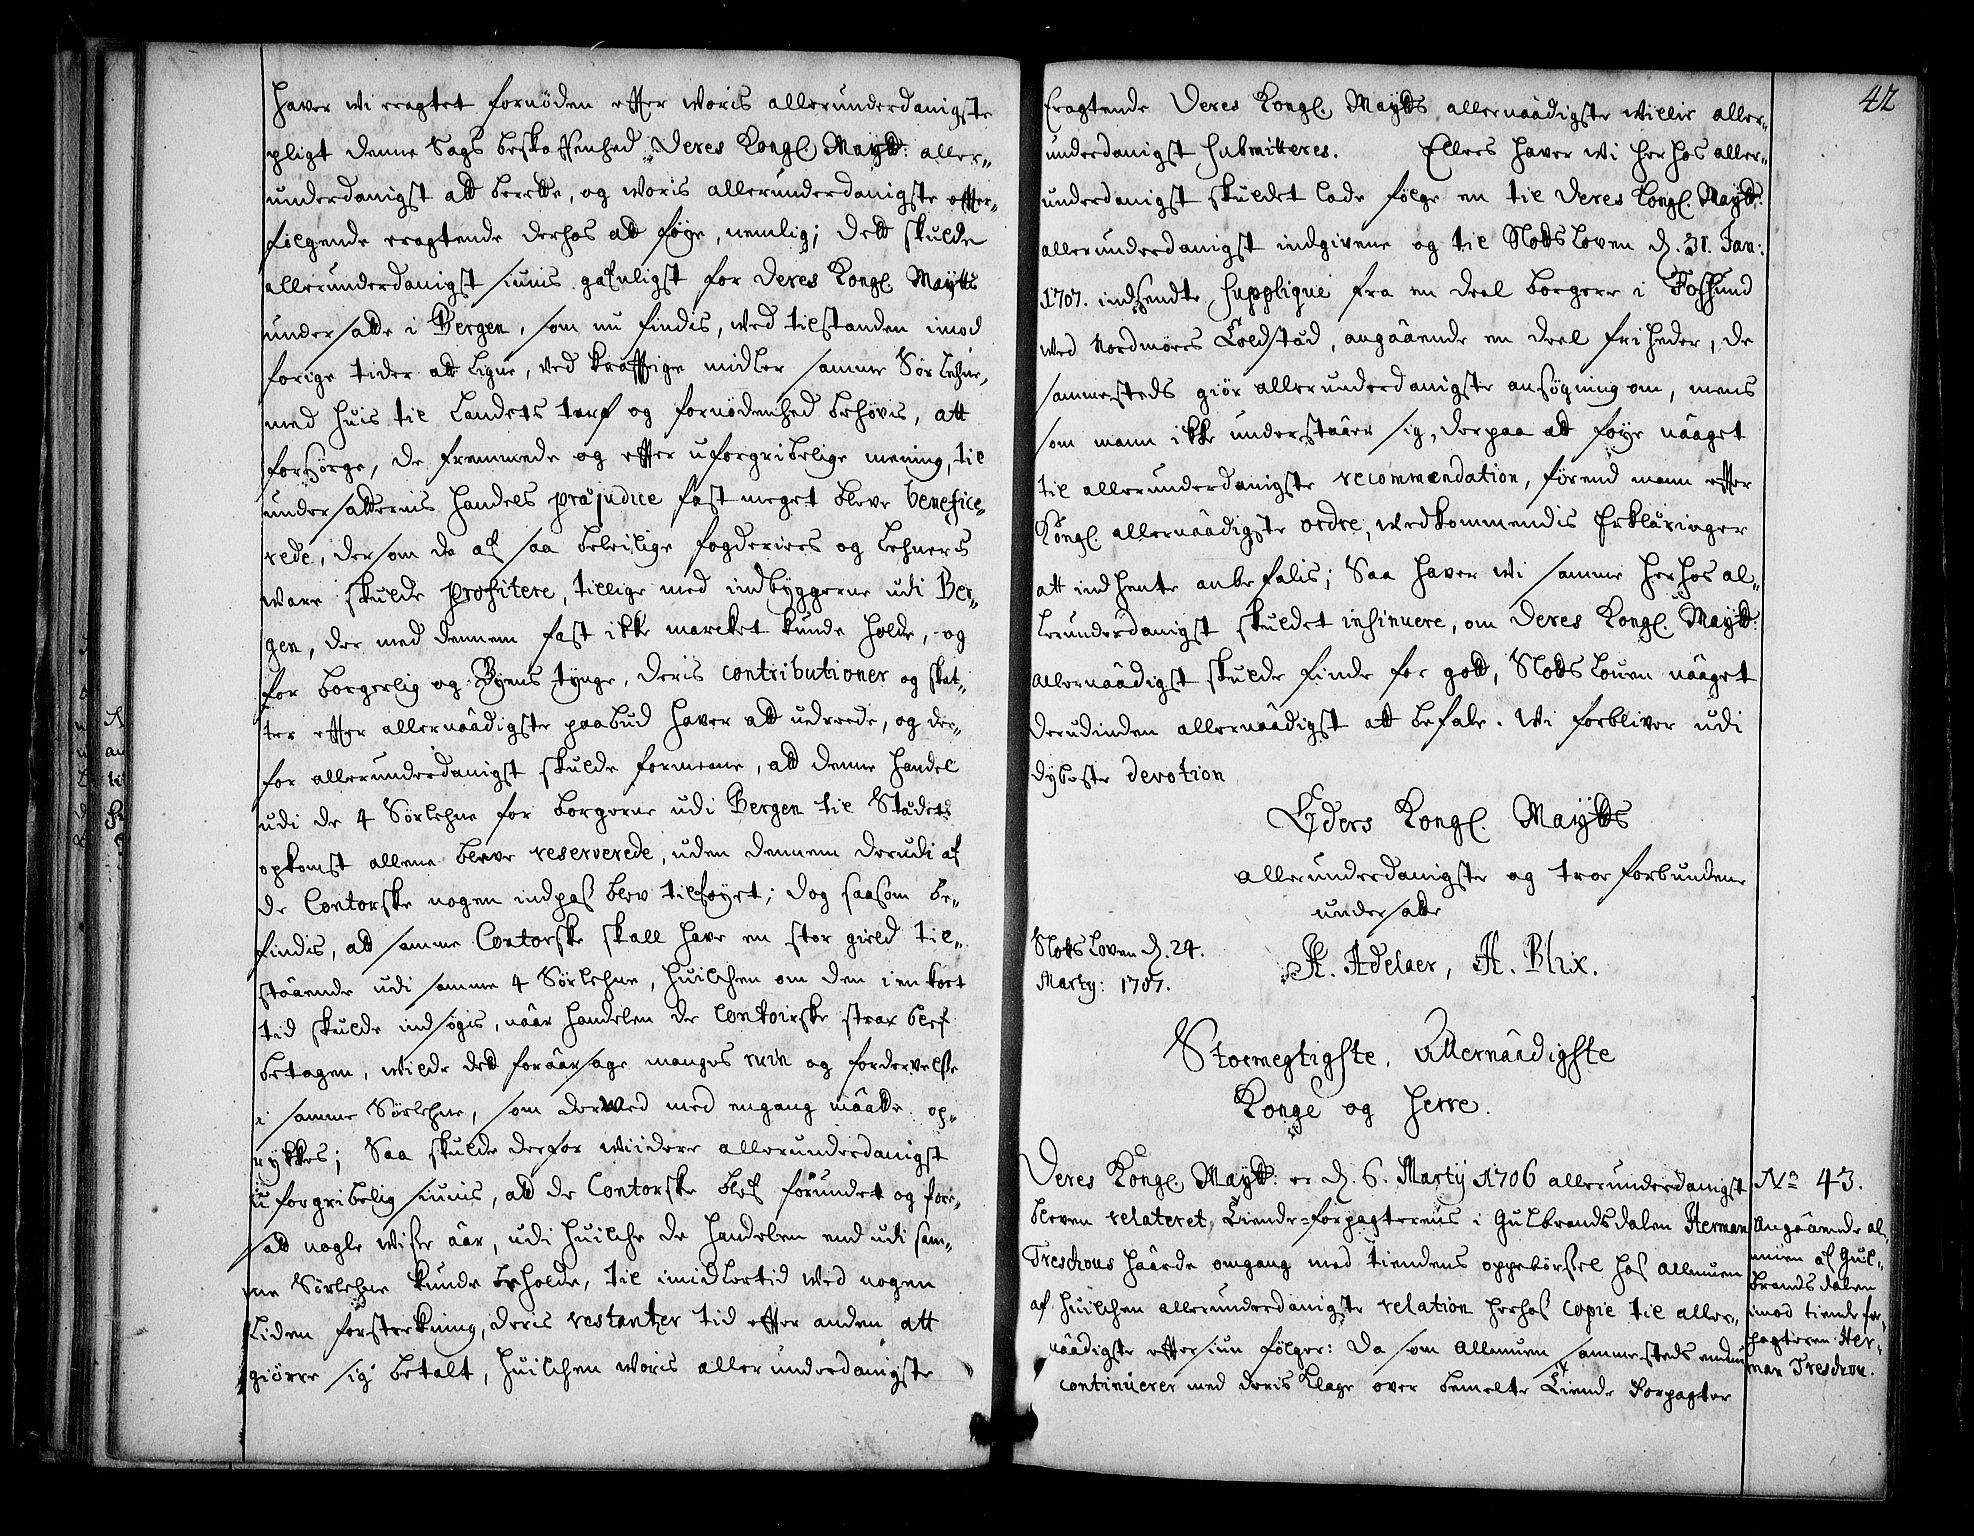 haver wi eragtet fornöden effter woris allerunderdanigste
pligt denne Sags beskaffenhed Deres Kongl. Maytt: aller„
underdanigst att berette, og woris allerunderdanigste effter„
følgende eragtende derhos att föye, nemlig; Dett skulde
allerunderdanigst siunis gafnligst for Deres Kongl. Maytts
undersatte i Bergen, som nu findis, wed tilstanden imod
forige tider att ligne, ved kräfftige midler samme Sörlehne,
med huis til Landets tarf og fornödenhed behövis, att
forsörge, de fremmede og effter uforgribelige mening, til
undersatternis handels præjudice fast meget bleve benefice„
rede, dersom de af saa beleilige fogderiers og Lehners
ware skulde profitere, tillige med indbyggerne udi Ber„
gen, der med dennem fast ikke marcket kunde holde, og
for borgerlig og Byens tynge, deris contributioner og skat„
ter effter allernaadigste paabud haver att udreede, og der„
for allerunderdanigst skulde formeene, att denne handel
udi de 4 Sörlehne for borgerne udi Bergen til Stadets
opkomst allene bleve reserverede, uden dennem derudi af
de Contorske nogen indpas blev tilföyet; dog saasom be„
findis, att samme Contorske skall have en stor gield til„
staaende udi samme 4 Sörlehne, huilchen om den i en kort
tid skulde indsögis, naar handelen de Contoirske strax blef
betagen, wilde dett foraarsage manges ruin og fordervelse
i samme Sörlehne, som derwed med engang maatte op„
rykkes; Saa skulde derfor wiidere allerunderdanigst
uforgribelig siunis, att de Contorske blef forundet og fore„
satt nogle wisse aar, udi huilche de handelen end udi sam„
me Sörlehne kunde beholde, til imidlertid wed nogen
liden forsterkning, deris restantzer tid effter anden att
giörre sig betalt, huilchen woris allerunderdanigste
42
Eragtende Deres Kongl. Maytts allernaadigste willie aller„
underdanigst submitteres. Ellers haver wi herhos aller„
underdanigst skuldet lade fölge en til Deres Kongl. Maytt:
allerunderdanigst indgivene og til Slotsloven d. 31. Jan:
1707. indsendte supplique fra en deel borgere i Fossund
wed Nordmörs Toldstad, angaaende en deel friheder, de
sammesteds giör allerunderdanigste ansögning om, mens
som mann ikke understaaer sig, derpaa att föye naaget
til allerunderdanigste recommendation, förend mann effter
Kongl. allernaadigste ordre, wedkommendis Erklæringer
att indhente anbefalis; Saa haver wi samme herhos al„
lerunderdanigst skuldet insinuere, om Deres Kongl. Maytt:
allernaadigst skulde finde for gott, Slotslouen naaget
derudinden allernaadigst att befale. Wi forbliver udi
dybeste devotion
Eders Kongl. Maytts
allerunderdanigste og troe forbundene
undersatte
Slotsloven d. 24.
Marty: 1707.
F. Adelaer, A. Blix.
Stormegtigste, Allernaadigste
Konge og Herre.
Deres Kongl. Maytt: er d. 6. Martij 1706 allerunderdanigst
bleven relateret, Tiende-forpagterens i Gulbrandsdalen Herman
Treschous haarde omgang med tiendens oppebörsel hos Allmuen
af huilchen allerunderdanigste relation herhos copie til aller„
naadigste efftersiun fölger: Da som Allmuen sammesteds endnu
continuerer med deris klage over bemelte Tiende Forpagter
No 43.
Angaaende al„
muen af Gul„
brandsdalen
imod tiende for„
pagteren Her„
man Treschou.